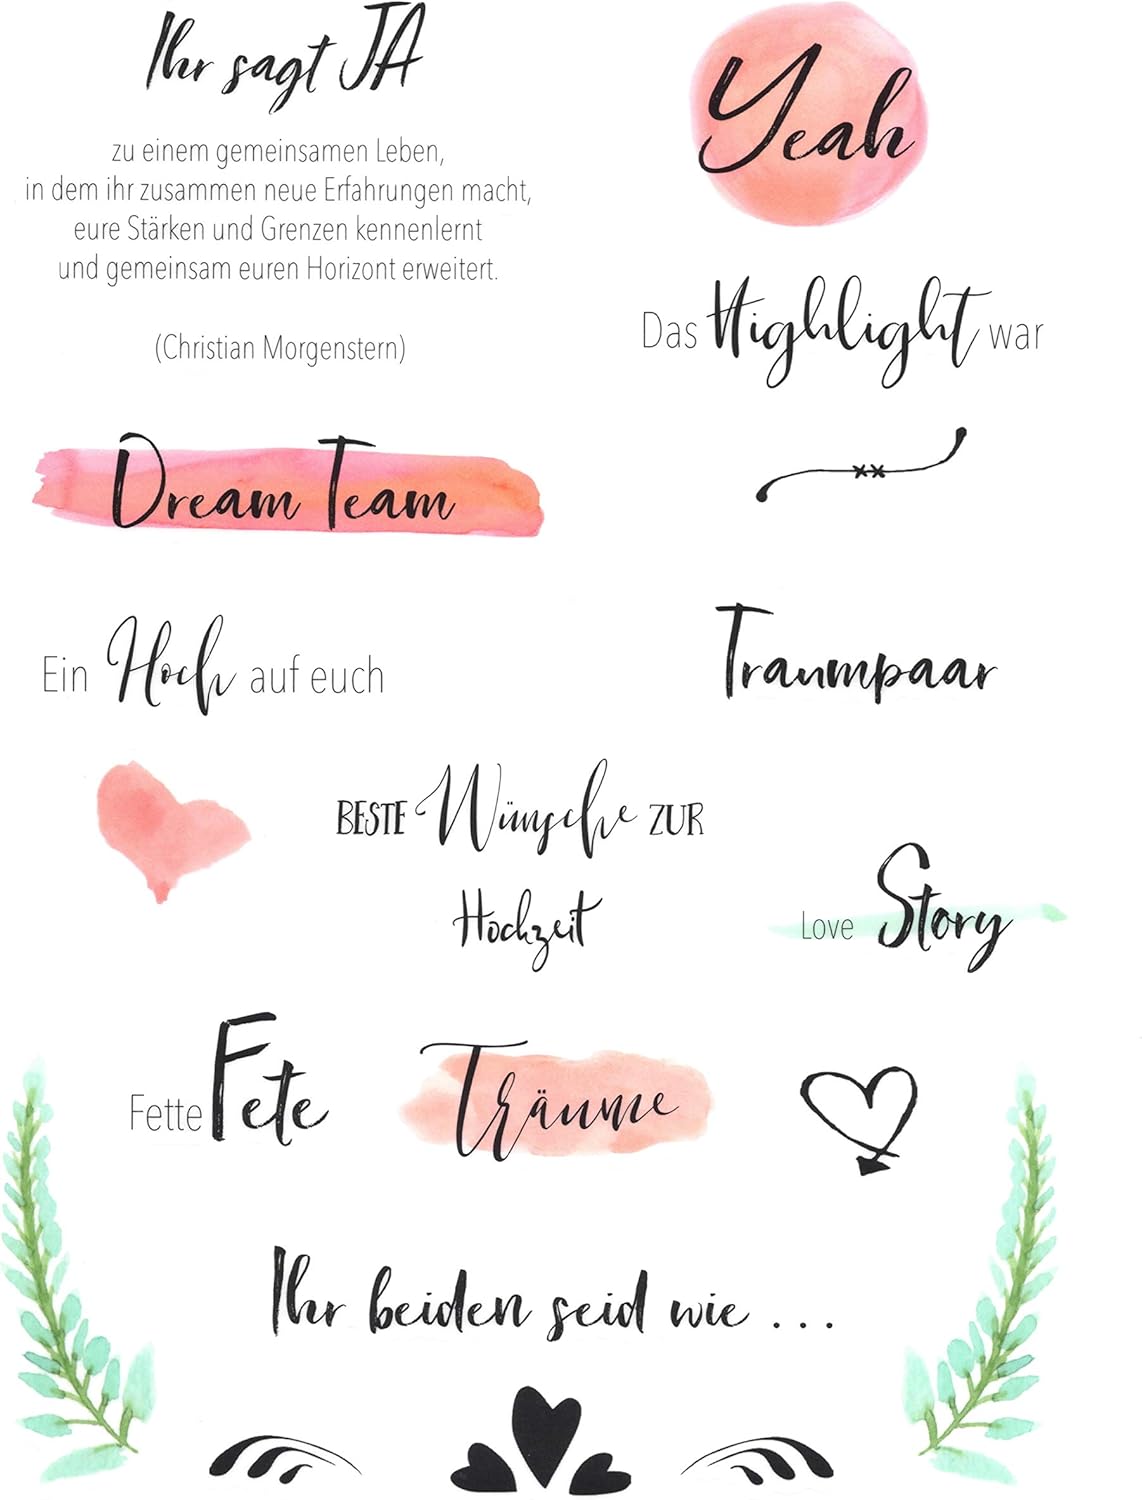 Ihr sagt JA
zu einem gemeinsamen Leben,
in dem ihr zusammen neue Erfahrungen macht,
eure Stärken und Grenzen kennenlernt
und gemeinsam euren Horizont erweitert.
(Christian Morgenstern)
Yeah
Das Highlight war
Dream Team
Ein Hoch auf euch
Traumpaar
BESTE Wünsche ZUR
Hochzeit
Love Story
Fette Fete
Träume
Ihr beiden seid wie ...